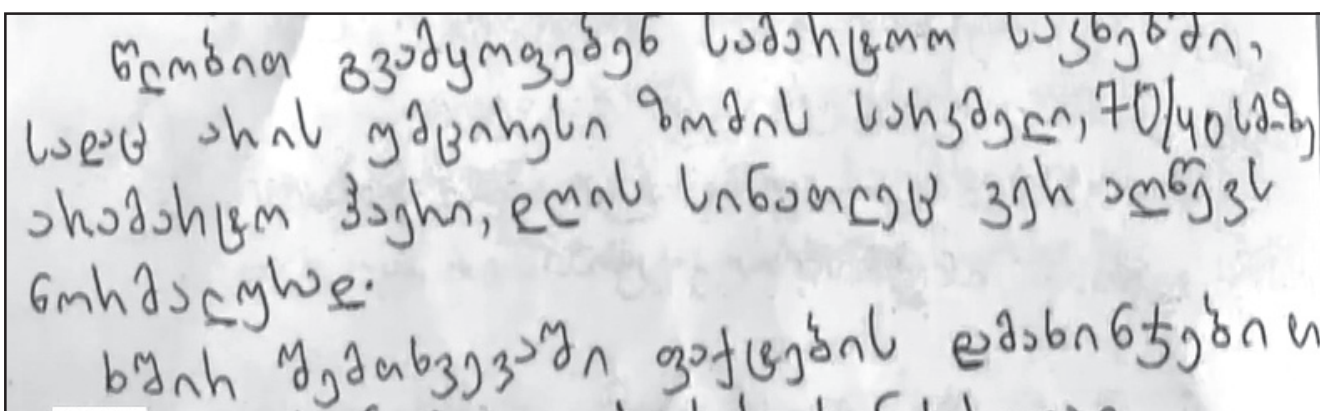 წლობით გვამყოფებენ სამარტოო საკნებში,
სადაც არის უმცირესი ზომის სარკმელი, 70/40 სმ-ზე
არამარტო ჰაერი, დღის სინათლეც ვერ აღწევს
ნორმალურად.
ხშირ შემთხვევაში ფაქტების დამახინჯებით